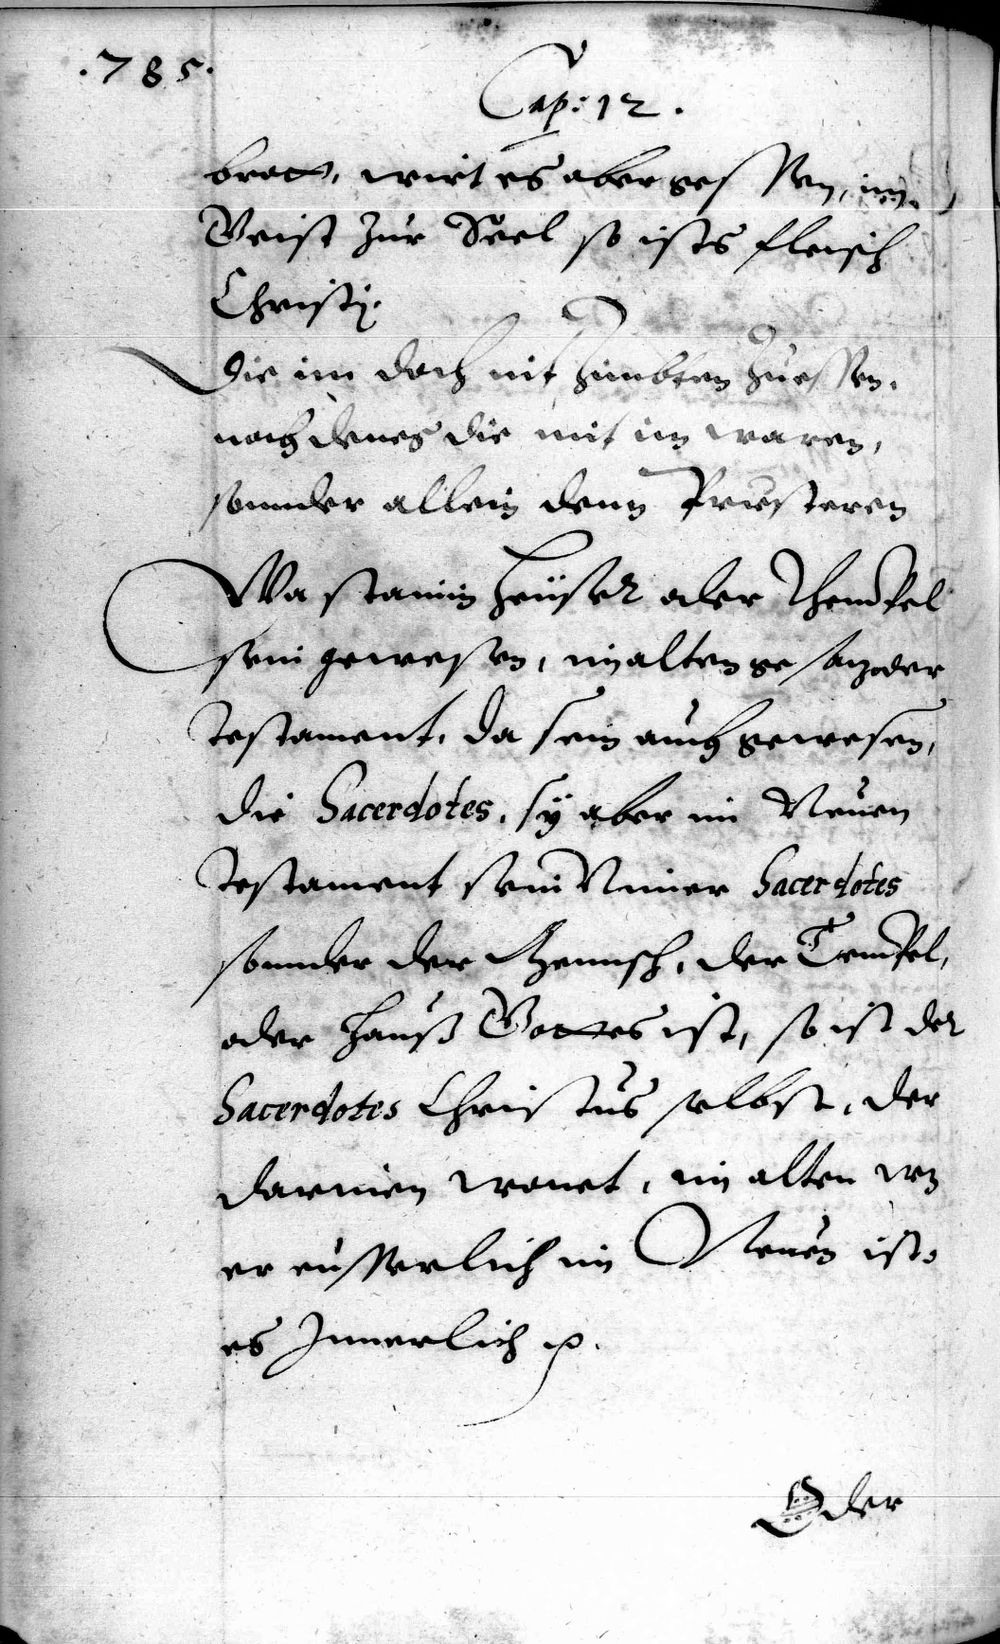 .785.
Cap: 12.
brott, wirt es aber gessen, im
Geist zur Seel so ists fleisch
Christj.
Die im doch nit zimbten zuessen,
noch denen die mit im waren,
sonnder allein denn Priesteren
Wa stainin heüser oder Thempel
sein gewesen, im alten gesatz oder
testament, da sein auch gewesen,
die Sacerdotes, sÿ aber im Neuen
testament sein Nimer Sacerdotes
sonnder der Mennsch, der Tempel,
oder hauß Gottes ist, so ist der
Sacerdotes Christus selbst, der
darinen wonet, im alten wz
er eusserlich im Neuen ist
es Innerlich
Oder